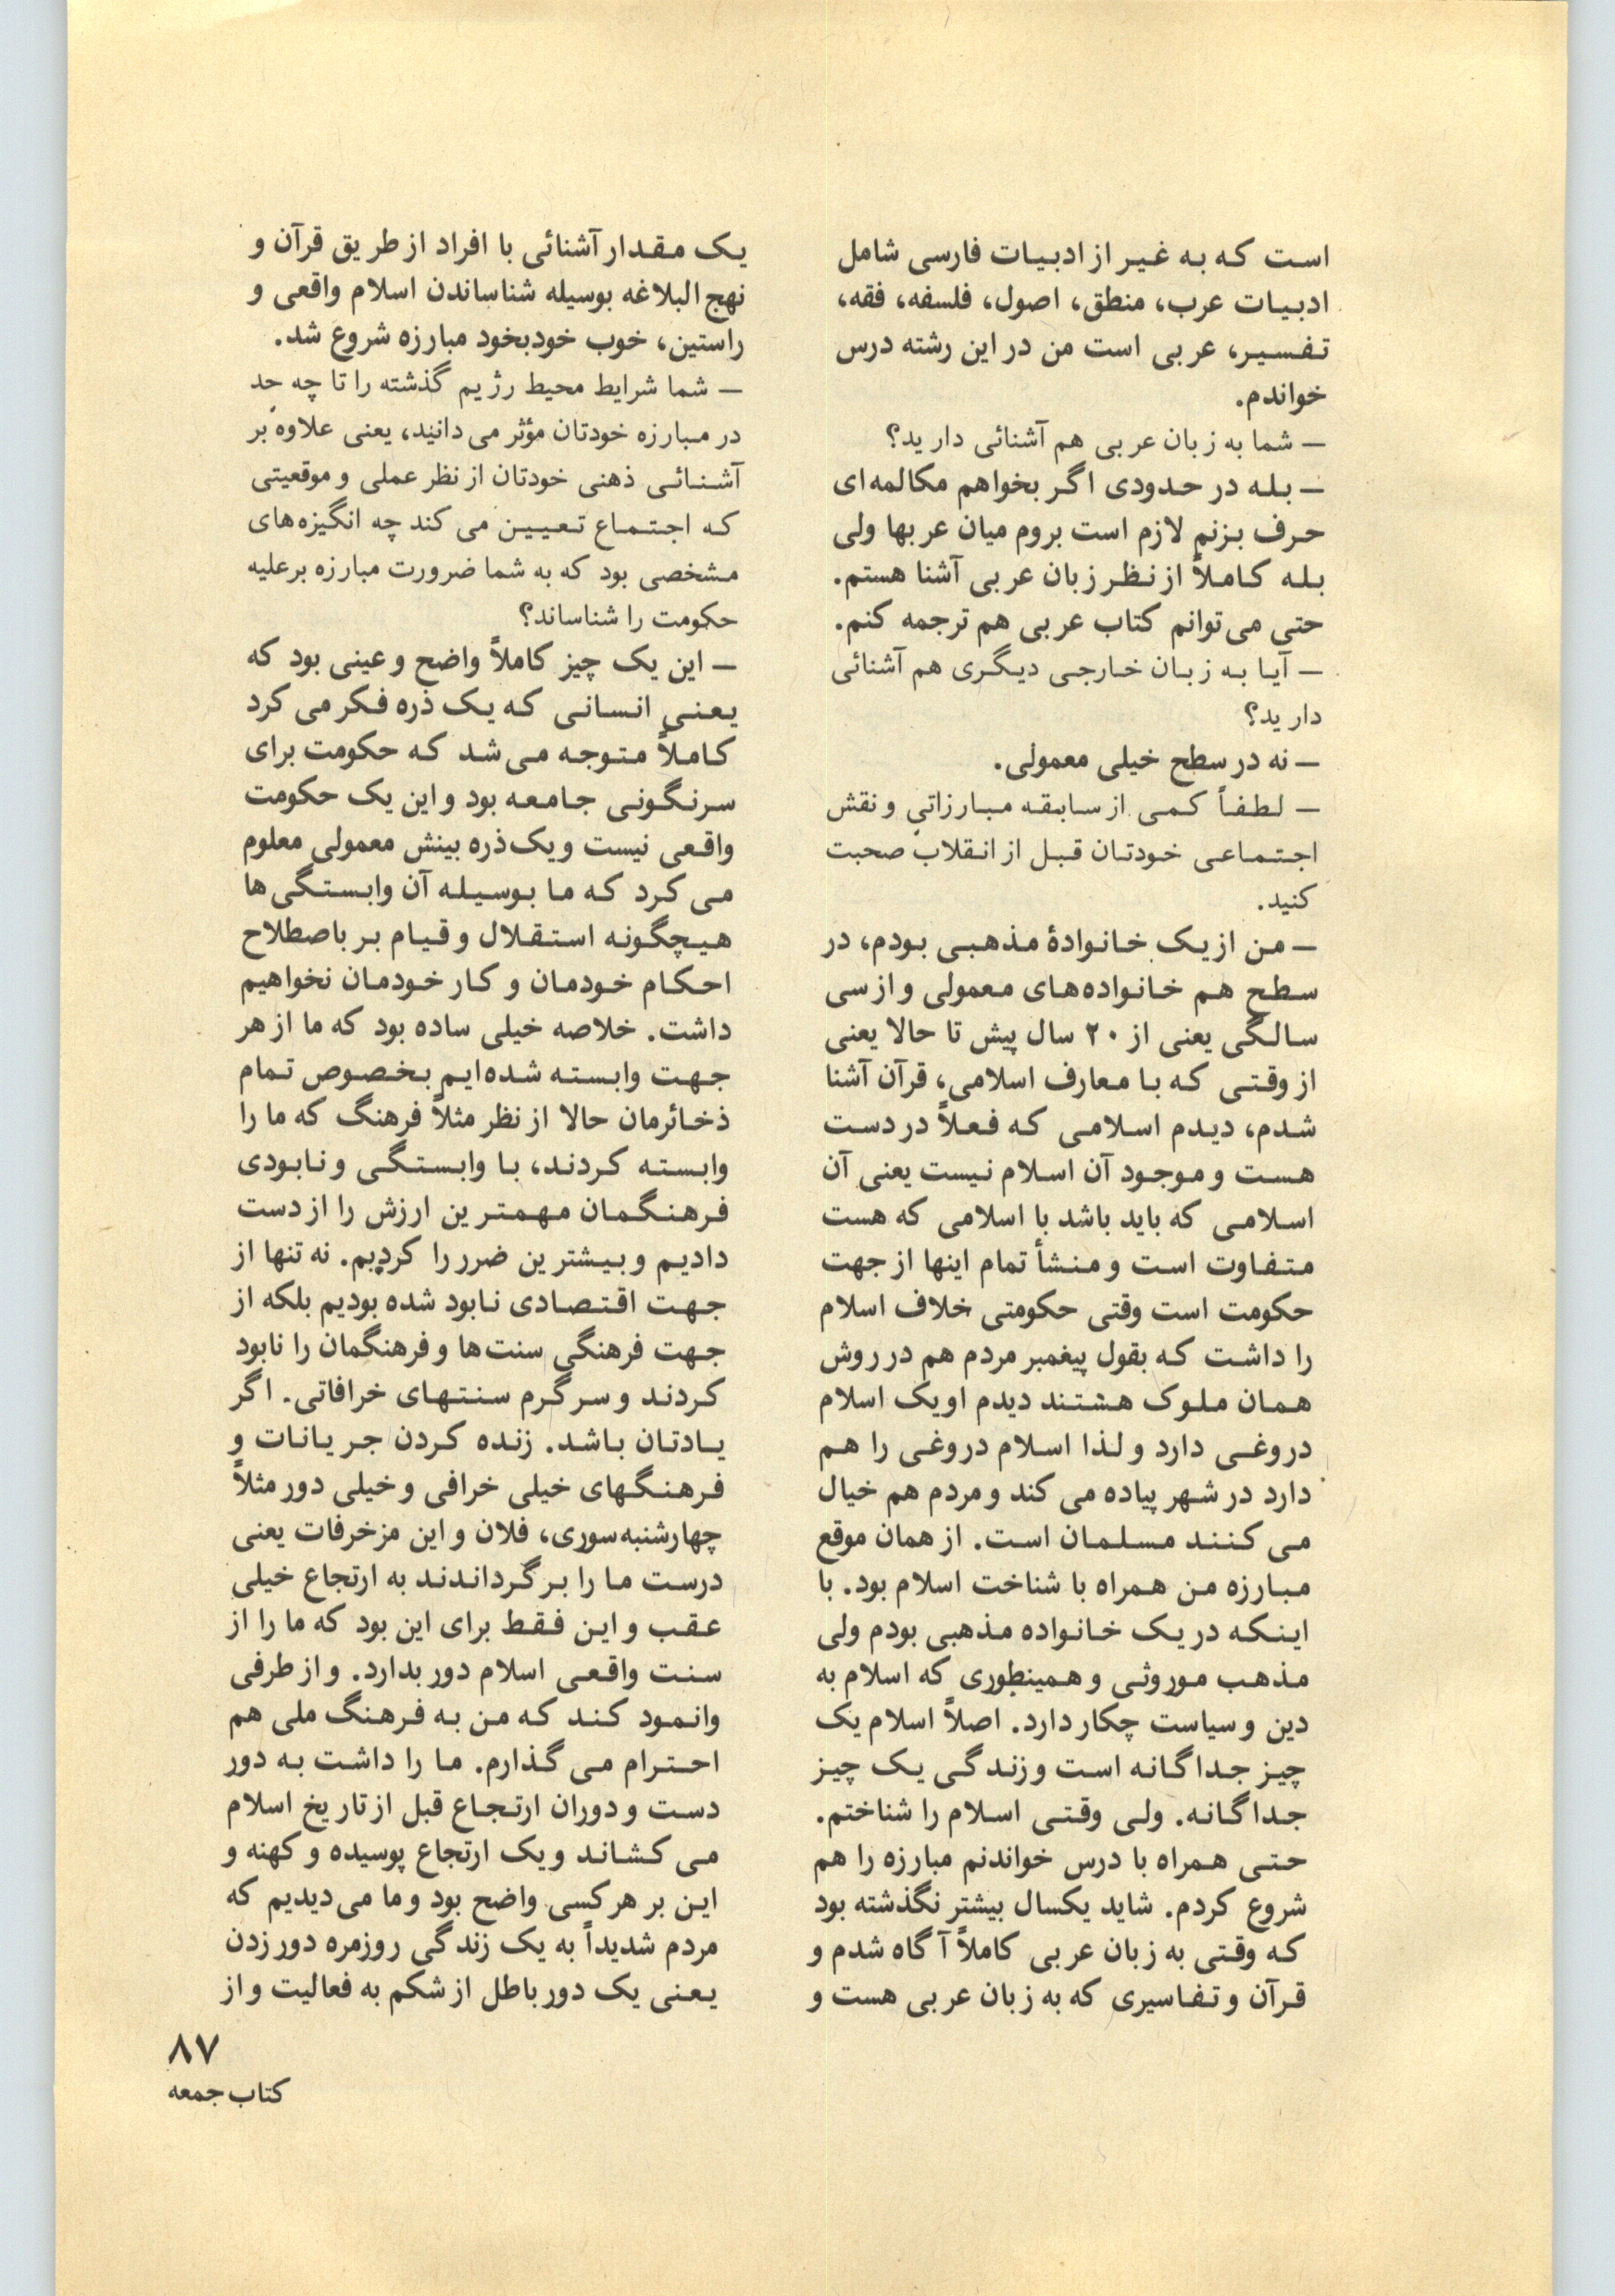 است که به غیر از ادبیات فارسی شامل
ادبیات عرب، منطق، اصول، فلسفه، فقه،
تفسیر، عربی است من در این رشته درس
خواندم.
— شما به زبان عربی هم آشنائی دارید؟
— بله در حدودی اگر بخواهم مکالمه‌ای
حرف بزنم لازم است بروم میان عربها ولی
بله کاملاً از نظر زبان عربی آشنا هستم.
حتی می‌توانم کتاب عربی هم ترجمه کنم.
— آیا به زبان خارجی دیگری هم آشنائی
دارید؟
— نه در سطح خیلی معمولی.
— لطفاً کمی از سابقه مبارزاتی و نقش
اجتماعی خودتان قبل از انقلاب صحبت
کنید.
— من از یک خانوادهٔ مذهبی بودم، در
سطح هم خانواده‌های معمولی و از سی
سالگی یعنی از ۲۰ سال پیش تا حالا یعنی
از وقتی که با معارف اسلامی، قرآن آشنا
شدم، دیدم اسلامی که فعلاً در دست
هست و موجود آن اسلام نیست یعنی آن
اسلامی که باید باشد با اسلامی که هست
متفاوت است و منشأ تمام اینها از جهت
حکومت است وقتی حکومتی خلاف اسلام
را داشت که بقول پیغمبر مردم هم در روش
همان ملوک هشتند دیدم او یک اسلام
دروغی دارد و لذا اسلام دروغی را هم
دارد در شهر پیاده می‌کند و مردم هم خیال
می‌کنند مسلمان است. از همان موقع
مبارزه من همراه با شناخت اسلام بود. با
اینکه در یک خانواده مذهبی بودم ولی
مذهب موروثی و همینطوری که اسلام به
دین و سیاست چکار دارد. اصلاً اسلام یک
چیز جداگانه است و زندگی یک چیز
جداگانه. ولی وقتی اسلام را شناختم.
حتی همراه با درس خواندنم مبارزه را هم
شروع کردم. شاید یکسال بیشتر نگذشته بود
که وقتی به زبان عربی کاملاً آگاه شدم و
قرآن و تفاسیری که به زبان عربی هست و
یک مقدار آشنائی با افراد از طریق قرآن و
نهج البلاغه بوسیله شناساندن اسلام واقعی و
راستین، خوب خودبخود مبارزه شروع شد.
— شما شرایط محیط رژیم گذشته را تا چه حد
در مبارزه خودتان مؤثر می‌دانید، یعنی علاوه بر
آشنائی ذهنی خودتان از نظر عملی و موقعیتی
که اجتماع تعیین می‌کند چه انگیزه‌های
مشخصی بود که به شما ضرورت مبارزه برعلیه
حکومت را شناساند؟
— این یک چیز کاملاً واضح و عینی بود که
یعنی انسانی که یک ذره فکر می‌کرد
کاملاً متوجه می‌شد که حکومت برای
سرنگونی جامعه بود و این یک حکومت
واقعی نیست و یک ذره بینش معمولی معلوم
می‌کرد که ما بوسیله آن وابستگی‌ها
هیچگونه استقلال و قیام بر باصطلاح
احکام خودمان و کار خودمان نخواهیم
داشت. خلاصه خیلی ساده بود که ما از هر
جهت وابسته شده‌ایم بخصوص تمام
ذخائرمان حالا از نظر مثلاً فرهنگ که ما را
وابسته کردند، با وابستگی و نابودی
فرهنگمان مهمترین ارزش را از دست
دادیم و بیشترین ضرر را کردیم. نه تنها از
جهت اقتصادی نابود شده بودیم بلکه از
جهت فرهنگی سنت‌ها و فرهنگمان را نابود
کردند و سرگرم سنتهای خرافاتی. اگر
یادتان باشد. زنده کردن جریانات و
فرهنگهای خیلی خرافی و خیلی دور مثلاً
چهارشنبه‌سوری، فلان و این مزخرفات یعنی
درست ما را برگرداندند به ارتجاع خیلی
عقب و این فقط برای این بود که ما را از
سنت واقعی اسلام دور بدارد. و از طرفی
وانمود کند که من به فرهنگ ملی هم
احترام می‌گذارم. ما را داشت به دور
دست و دوران ارتجاع قبل از تاریخ اسلام
می‌کشاند و یک ارتجاع پوسیده و کهنه و
این بر هر کسی واضح بود و ما می‌دیدیم که
مردم شدیداً به یک زندگی روزمره دور زدن
یعنی یک دور باطل از شکم به فعالیت و از
۸۷
کتاب جمعه